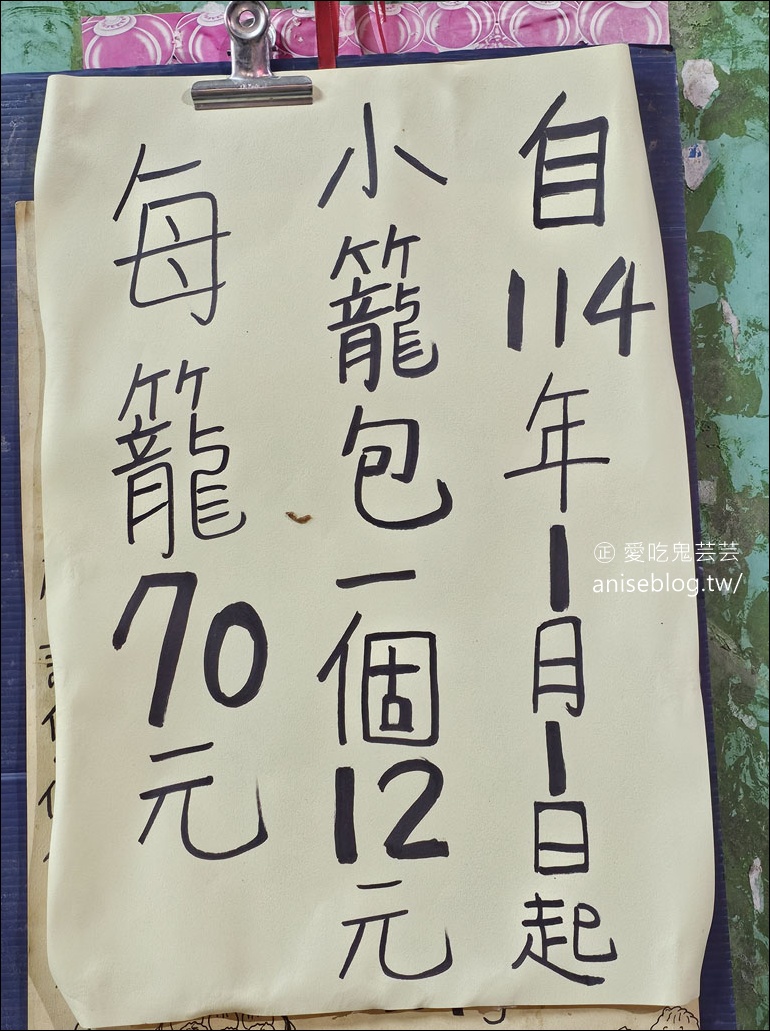 自114年1月1日起
小籠包一個12元
每籠70元
㊣ 愛吃鬼芸芸
aniseblog.tw/